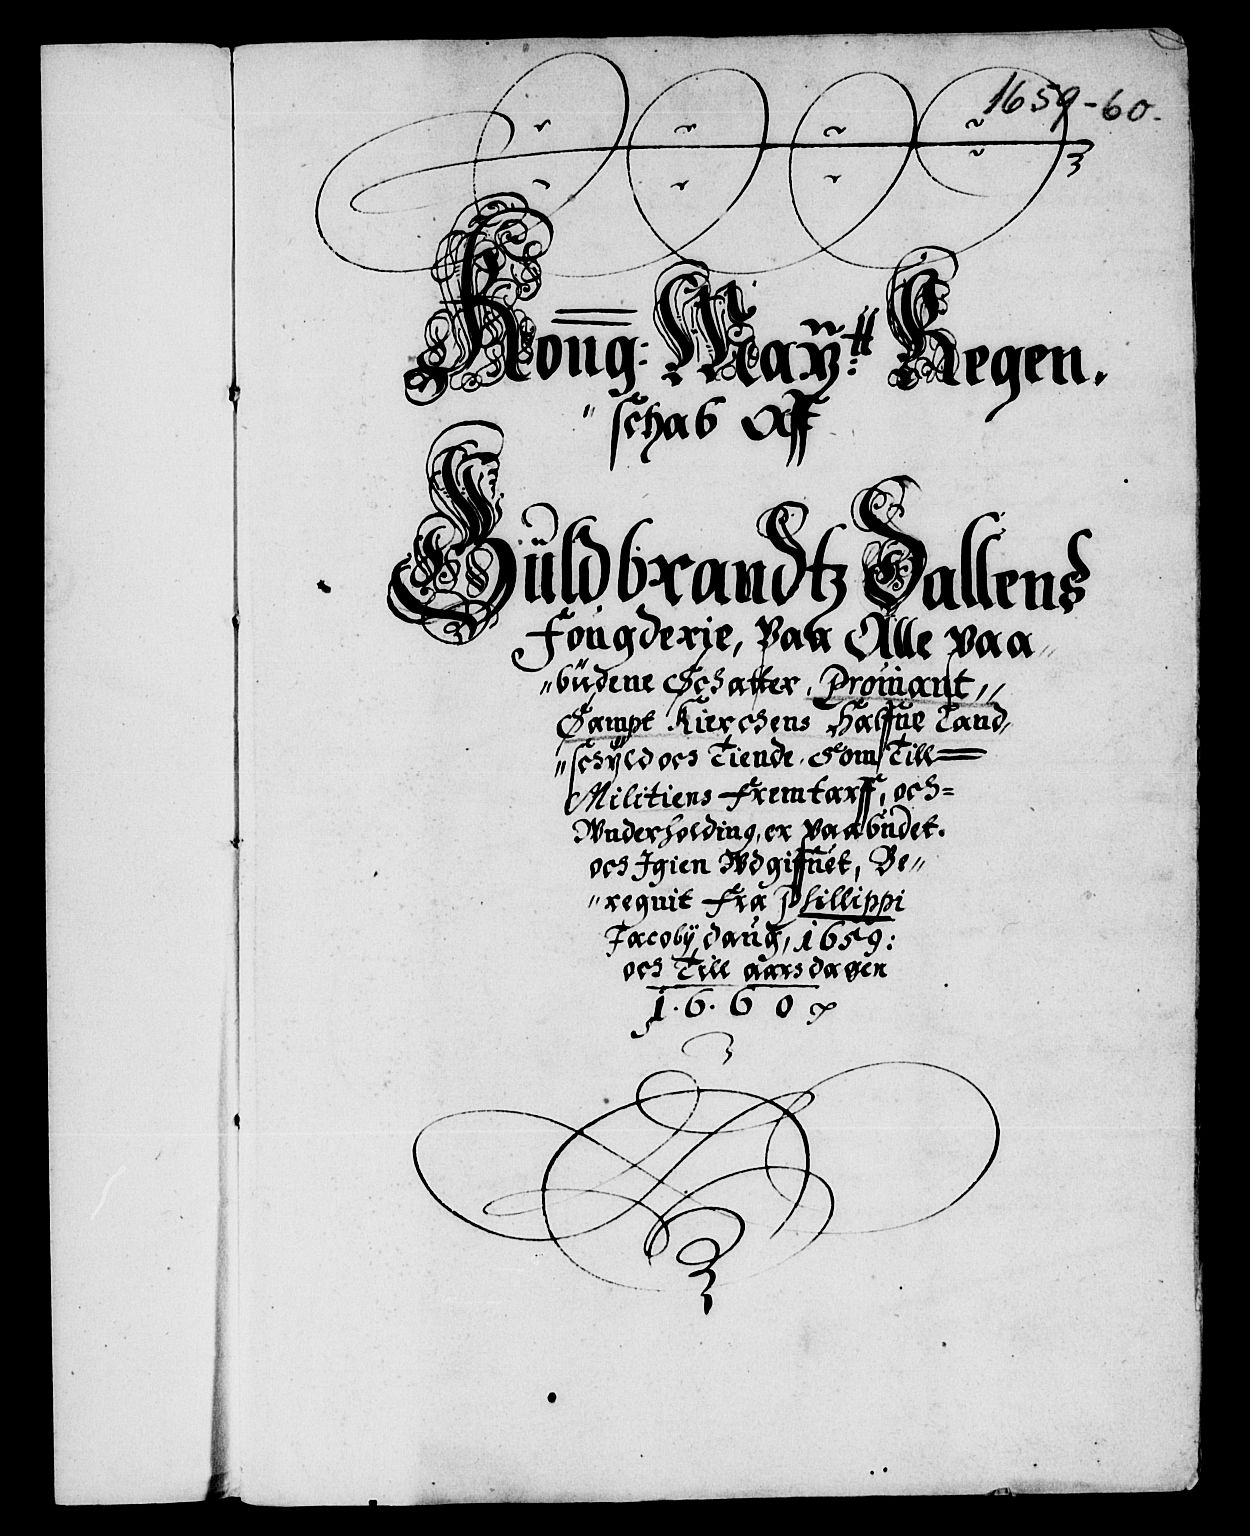 1659-60.
Kong: Maÿ:tt Regen.
"schab Aff
Güldbrandtz Dallens
Fougderie, paa Alle paa„
„büdene Schatter, Prouiant„
Sampt Kierchens Halfue Land„
„schÿld och Tiende, Som Till=
Militiens Fremtarff, och=
Wnderholding, er paabudet.
och Igien Wdgiffuet, Be„
„regnit fra Phillippi
Jacobÿ daug, 1659:
och Till aarsdagen
1.6.60